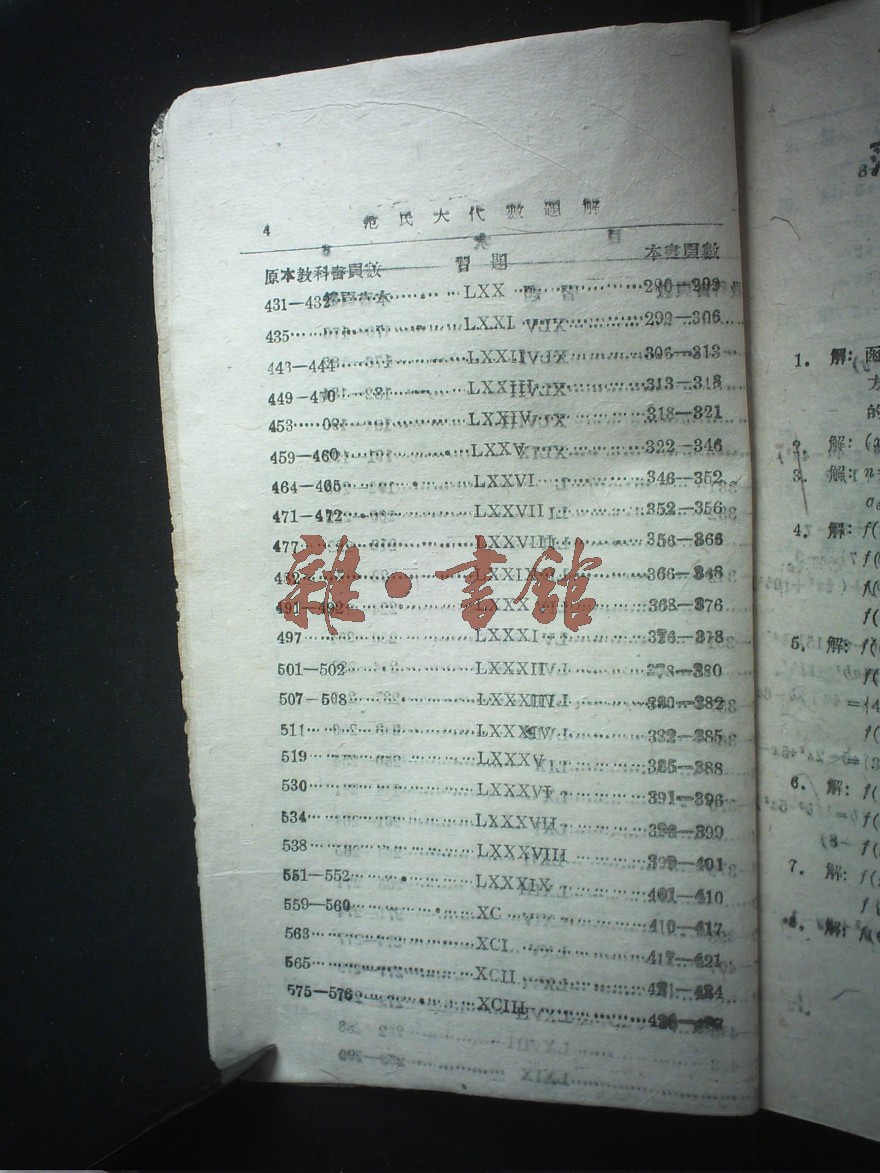 4 范氏大代數題解
原本教科書頁數 習題 本書頁數
431—432 LXX 290—299
435 LXXI 299—306
443—444 LXXII 306—313
449-470 LXXIII 313—318
453 LXXIV 318—321
459—460 LXXV 322—346
464—465 LXXVI 346—352
471—472 LXXVII 352—356
477 LXXVIII 356—366
LXXIX 366—
491—492 LXXX 368—376
497 LXXXI 376—378
501—502 LXXXII 378—380
507-508 LXXXIII 380—382
511 LXXXIV 382—385
519 LXXXV 385—388
530 LXXXVI 391—396
534 LXXXVII 399
538 LXXXVIII 399—401
551—552 LXXXIX 401—410
559—560 XC 410—417
563 XCI 417—421
565 XCII 421—424
575—576 XCIII
雜·書館
1. 解:
2. 解:
3. 解:
4. 解: f(
5. 解: f(
6. 解: f(
7. 解: f(
8. 解: